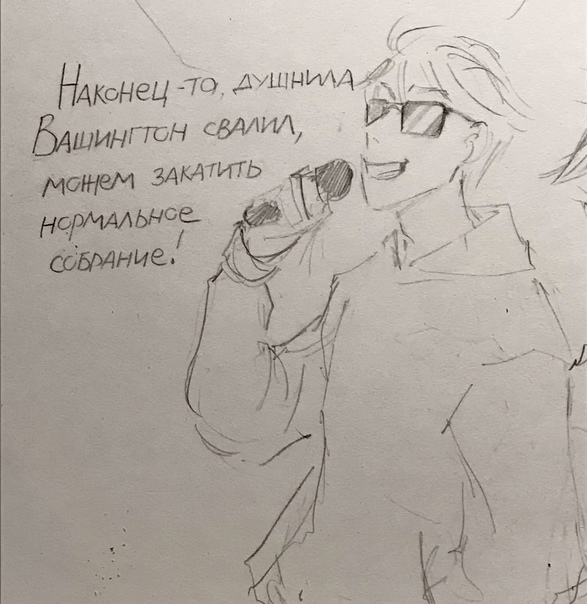 Наконец-то, душнила
Вашингтон свалил,
можем закатить
нормальное
собрание!